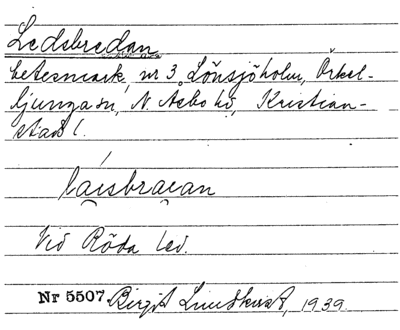 Ledsbredan
betesmark, nr 3, Lönsjöholm, Örkel-
ljunga sn, N. Åsbo hd, Kristian-
stad l.
Vid Röda led.
Nr 5507 Birgit Lindkvist, 1939.